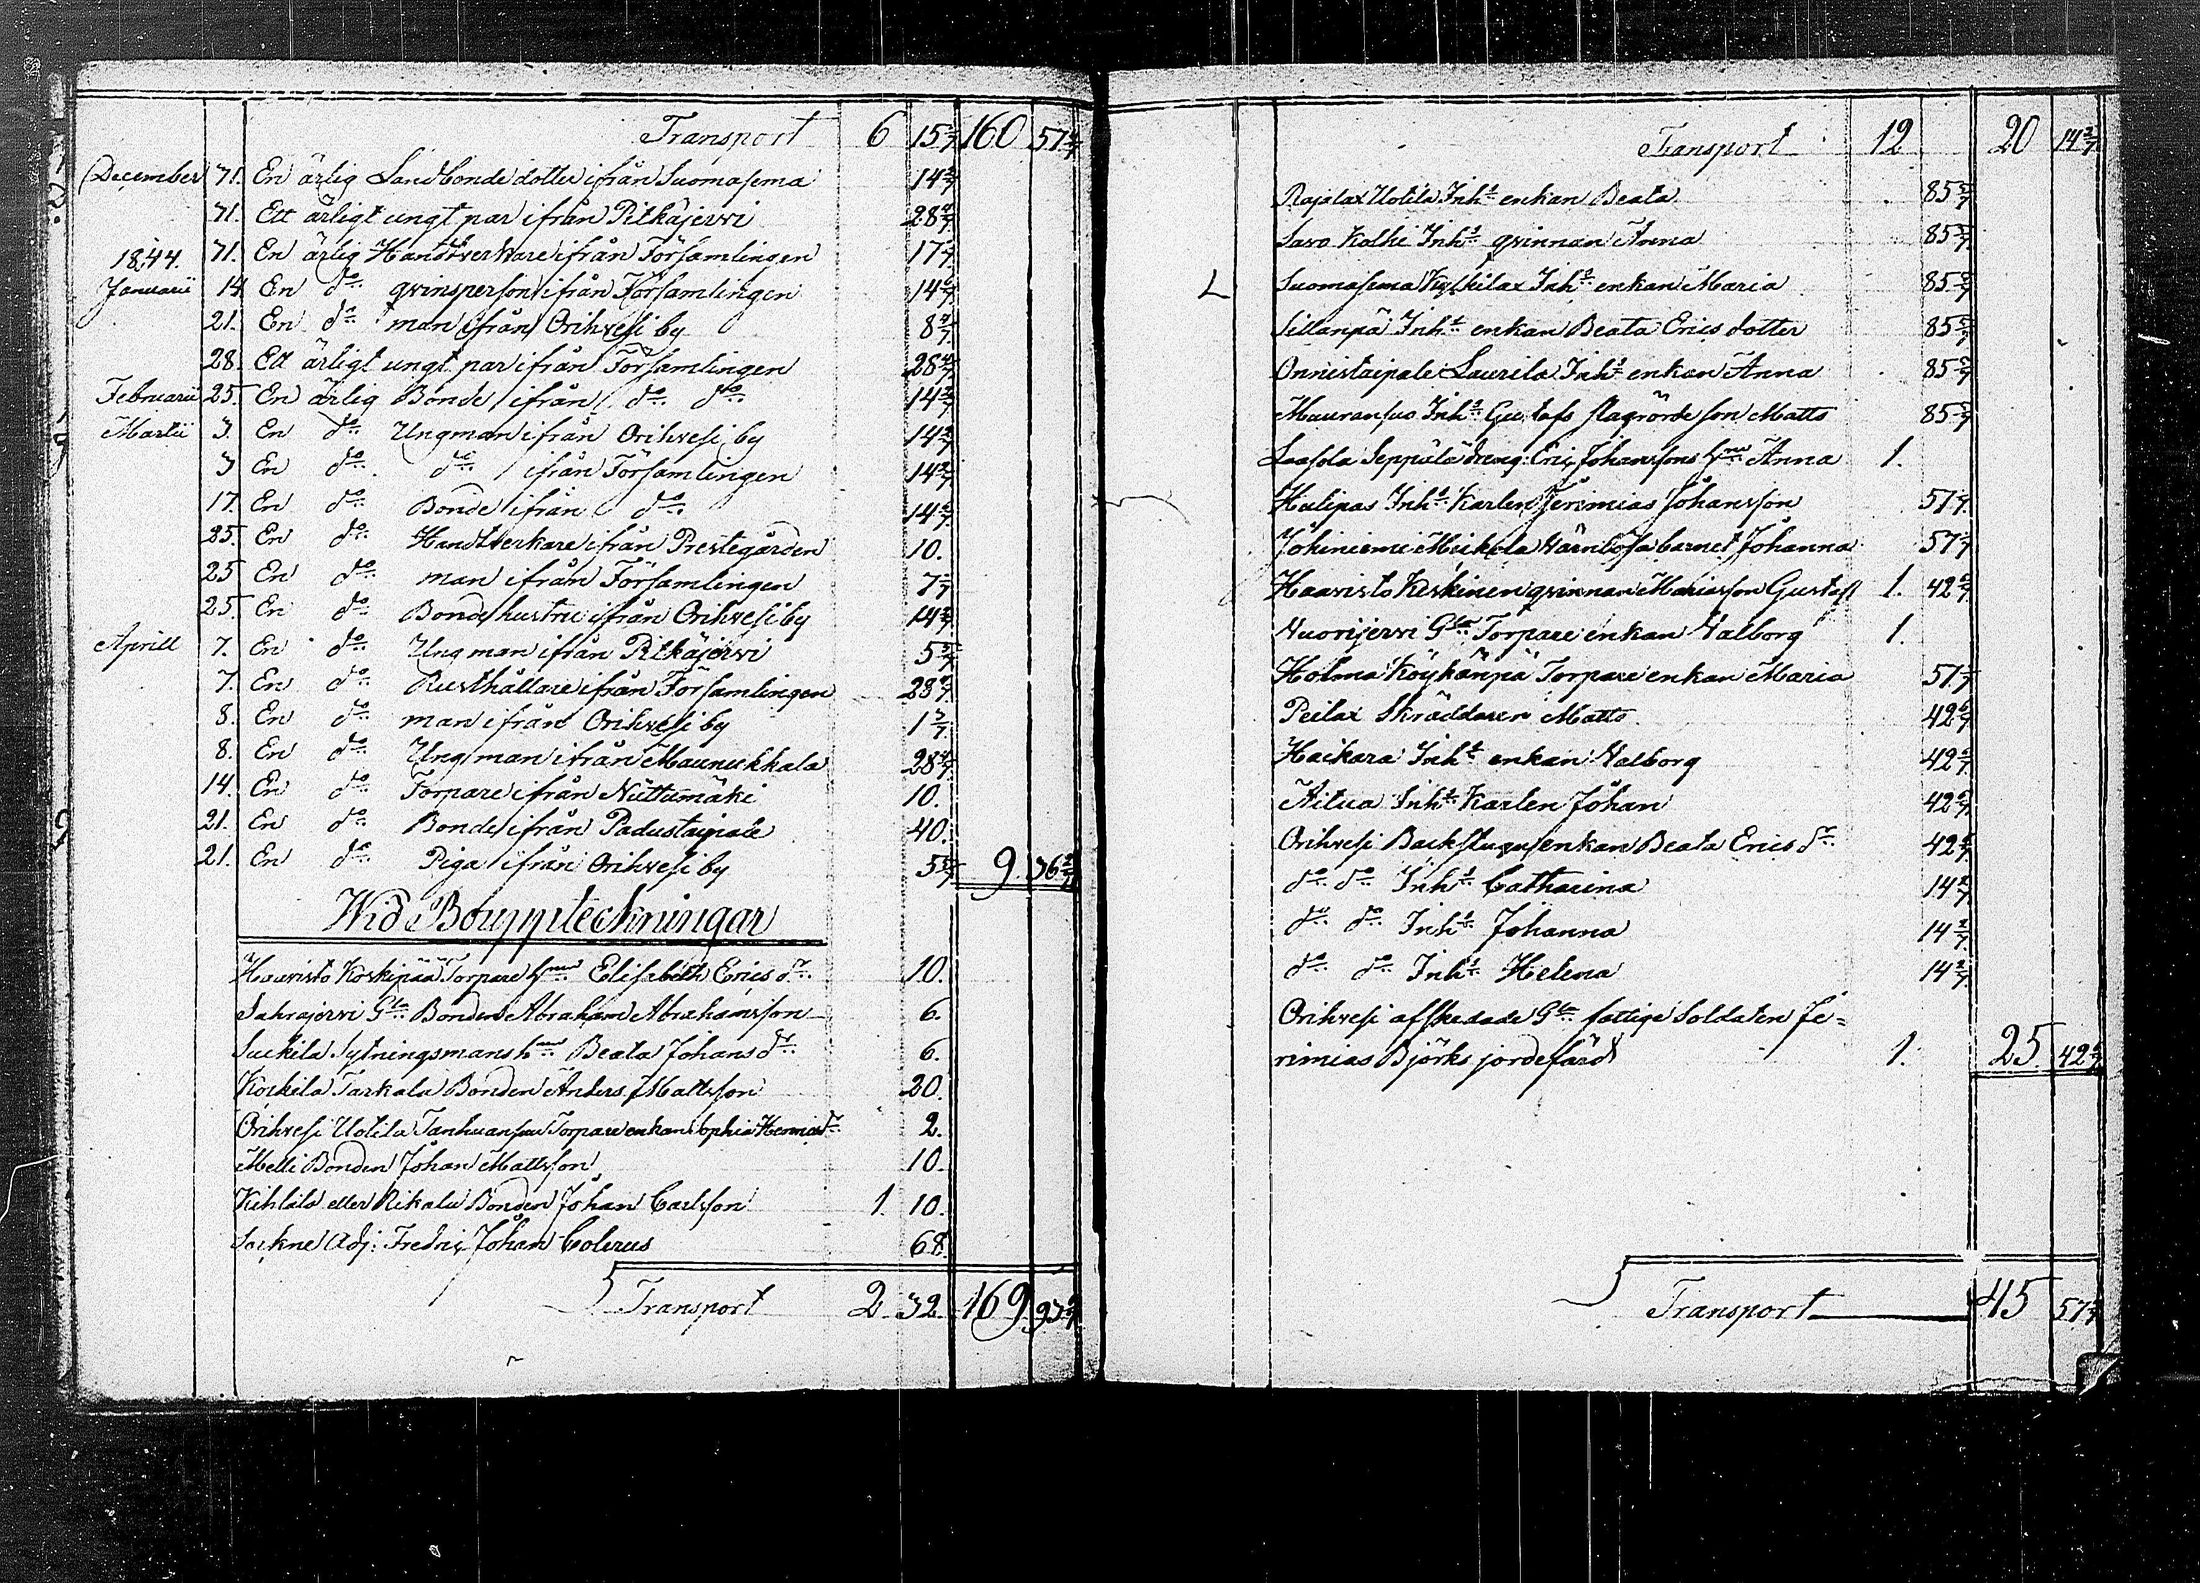 Transport 6 15 5/7 160 57 1/7
December 31. En ärlig Landbonde dotter ifrån Suomasema 14 2/7
31. Ett ärligt ungt par ifrån Pitkäjervi 28 4/7
1844. 31. En ärlig Handtverkare ifrån Församlingen 17 1/7
Januarii 14 En do qvinsperson ifrån Församlingen 14 2/7
21. En do man ifrån Orihvesi by 8 4/7
28. Ett ärligt ungt par ifrån Församlingen 28 4/7
Februarii 25. En ärlig Bonde ifrån do do 14 2/7
Martii 3. En do Ungman ifrån Orihvesi by 14 2/7
3 En do do ifrån Församlingen 14 2/7
17. En do Bonde ifrån do 14 2/7
25. En do Handtverkare ifrån Prestegården 10.
25 En do man ifrån Församlingen 7 1/7
25. En do Bondehustru ifrån Orihvesi by 14 2/7
Aprill 7. En do Ungman ifrån Pitkäjervi 5 5/7
7. En do Rusthållare ifrån Församlingen 28 4/7
8. En do man ifrån Orihvesi by 1 3/7
8. En do Ungman ifrån Maunukkala 28 4/7
14. En do Torpare ifrån Niittumäki 10.
21. En do Bonde ifrån Padustaipale 40.
21. En do Piga ifrån Orihvesi by 5 5/7 9. 36 2/7
Wid Bouppteckningar
Haavisto Koskipää Torpare hru Elisabeth Erics dr 10.
Sahrajervi Gla Bonden Abraham Abrahamsson 6.
Suckila Sytningsmans hru Beata Johans dr 6.
Kockila Tarkala Bonden Anders Mattsson 20.
Orihvesi Uotila Tanhuansuu Torpare enkan Sophia Henrics dr 2.
Melli Bonden Johan Mattsson 10.
Kihlila eller Rikala Bonden Johan Carlsson 1. 10.
Sockne Adj: Fredric Johan Colerus 68.
Transport 2 32. 169 93 3/7
Transport 12 20 14 2/7
Rajalax Uotila Inhs enkan Beata 85 5/7
Savo Kolhi Inhs qvinnan Anna 85 5/7
L Suomasema Kyckilax Inhs enkan Maria 85 5/7
Sillanpä Inhs enkan Beata Erics dotter 85 5/7
Onnistaipale Laurila Inhs enkan Anna 85 5/7
Mauransuo Inhs Gustafs slagrörde son Matts 85 5/7
Laasola Seppälä dreng Eric Johanssons hru Anna 1.
Halipas Inhs Karlen Jerimias Johansson 57 1/7
Johiniemi Mickola Värnlösa barnet Johanna 57 1/7
Haavisto Keskinen qvinnan Mariasson Gustaf 1. 42 6/7
Vuorijervi Gla Torpare enkan Valborg 1.
Holma Köykänpä Torpare enkan Maria 57 1/7
Peilax Skräddaren Matts 42 6/7
Haikara Inhs enkan Valborg 42 6/7
Aitua Inhs Karlen Johan 42 6/7
Orihvesi Backstuguenkan Beata Erics dr 42 6/7
do do Inhs Catharina 14 2/7
do do Inhs Johanna 14 2/7
do do Inhs Helena 14 2/7
Orihvesi afskedade Gla fattige Soldaten Je=
rimias Björks jordefärd 1. 25. 42 6/7
Transport 45 57 1/7